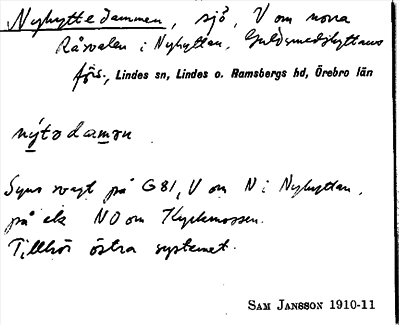 Nyhyttedammen, sjö, V om norra
Råsvalen i Nyhyttan, Guldsmedshyttans
förs., Lindes sn, Lindes o. Ramsbergs hd, Örebro län
nýtodamən
Syns svagt på G 81, V om N i Nyhyttan,
på ek NO om Kyrkmossen.
Tillhör östra systemet.
SAM JANSSON 1910-11